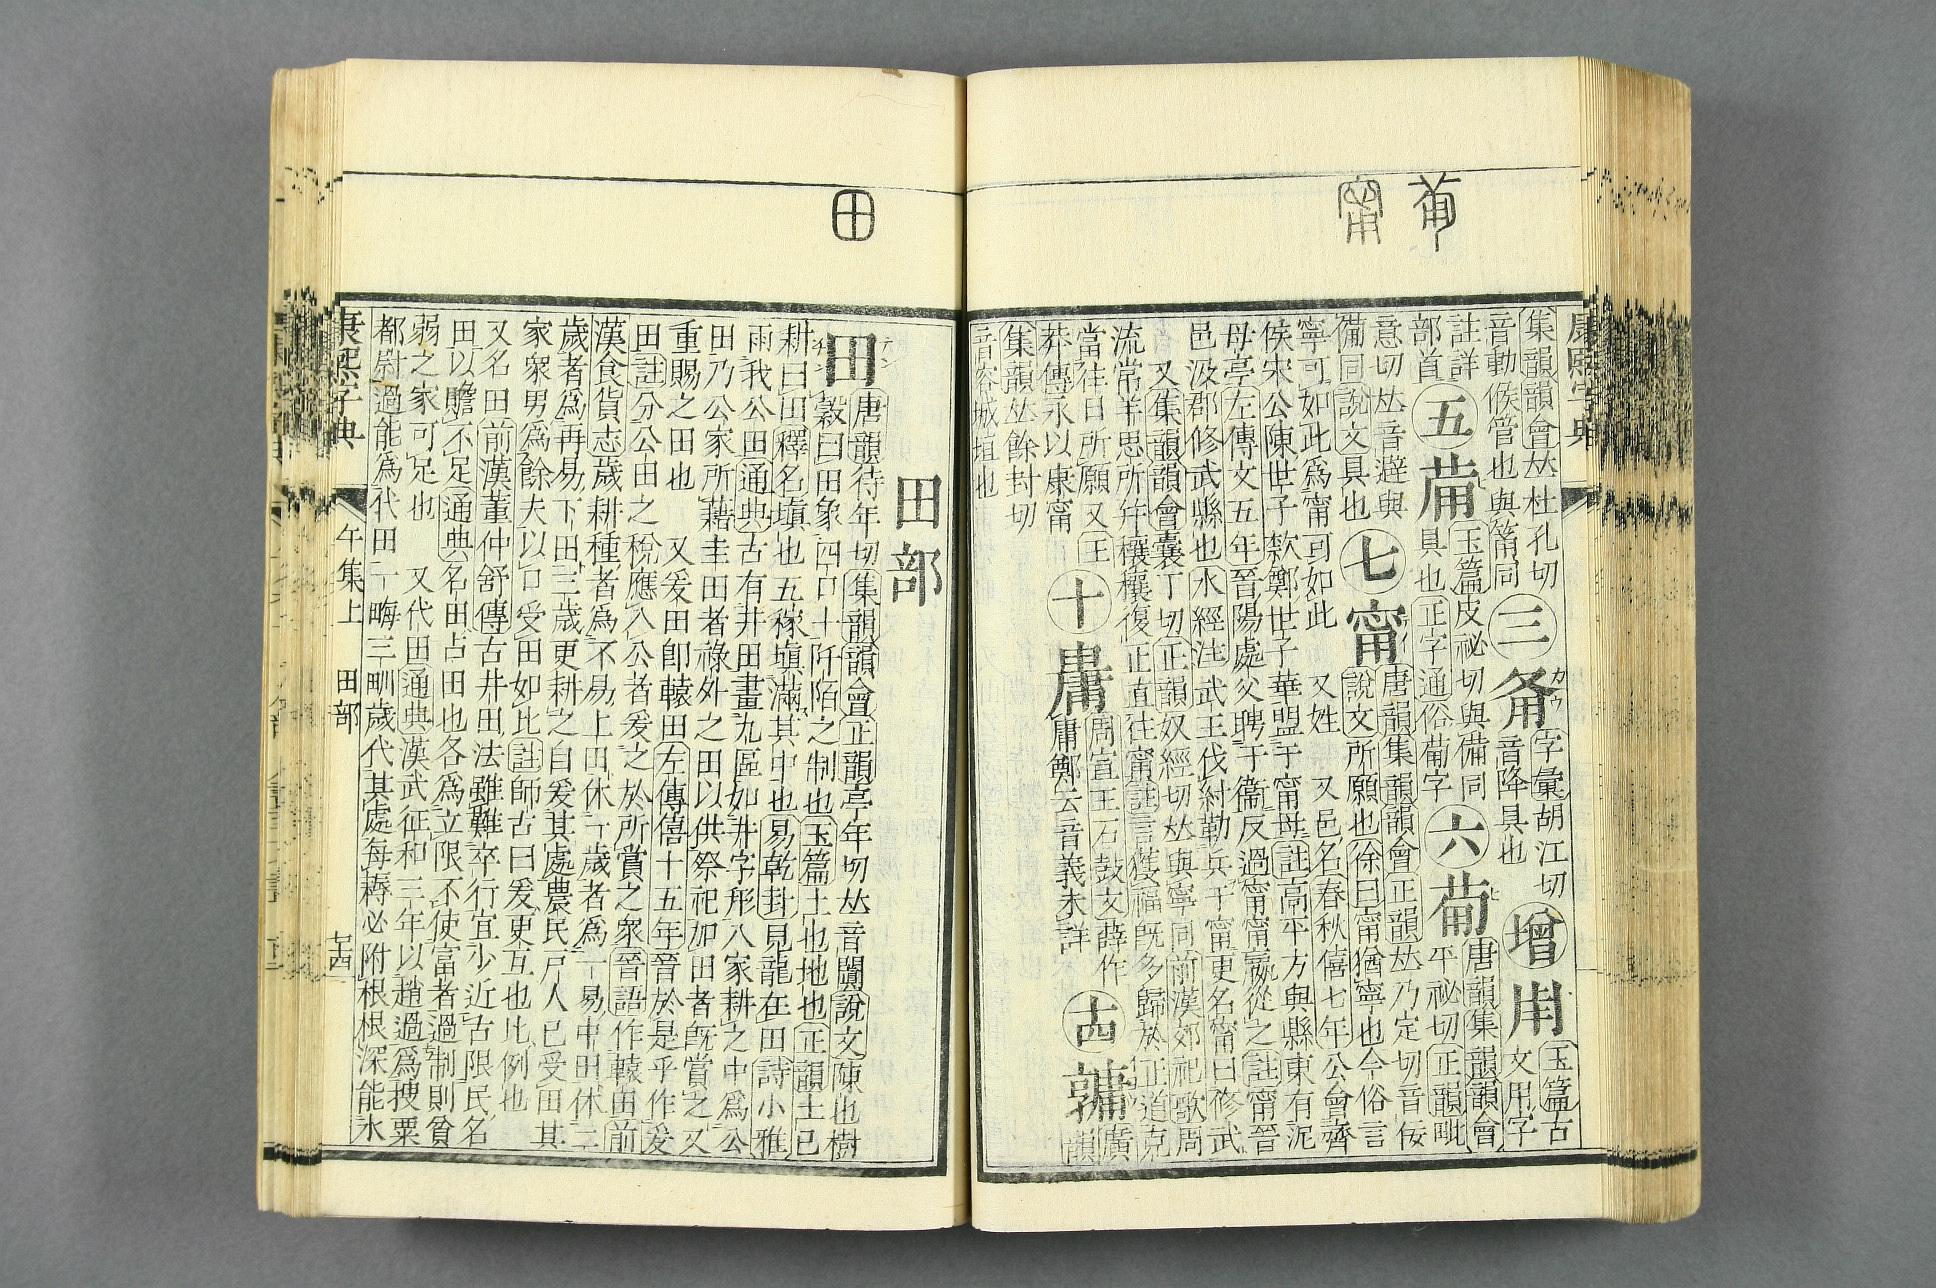 康熙字典
集韻韻會𠀤杜孔切
音動候管也與筩同
三
𤰇
字彙胡江切
音降具也
增
𤰃
玉篇古
文用字
註詳
部首
五
𤰈
玉篇皮祕切與備同
具也正字通俗葡字
六
葡
唐韻集韻韻會
平祕切正韻毗
意切𠀤音避與
備同說文具也
七
甯
唐韻集韻韻會正韻𠀤乃定切音佞
說文所願也徐曰甯猶寧也今俗言
寧可如此爲甯可如此 又姓 又邑名春秋僖七年公會齊
侯宋公陳世子款鄭世子華盟于甯母註高平方與縣東有泥
母亭左傳文五年晉陽處父聘于衞反過甯甯嬴從之註甯晉
邑汲郡修武縣也水經注武王伐紂勒兵于甯更名甯曰修武
又集韻韻會囊丁切正韻奴經切𠀤與寧同前漢郊祀歌周
流常羊思所幷穰穰復正直往甯註言獲福旣多歸於正道克
當往日所願 又王
莽傳永以康甯
十
𤰎
周宣王石鼓文薛作
庸鄭云音義未詳
𠦶
廣
韻
集韻𠀤餘封切
音容城垣也
田部
田
唐韻待年切集韻韻會正韻亭年切𠀤音闐說文陳也樹
穀曰田象四口十阡陌之制也玉篇土也地也正韻土已
耕曰田釋名塡也五稼塡滿其中也易乾卦見龍在田詩小雅
雨我公田通典古有井田畫九區如井字形八家耕之中爲公
田乃公家所藉圭田者祿外之田以供祭祀加田者旣賞之又
重賜之田也 又爰田卽轅田左傳僖十五年晉於是乎作爰
田註分公田之稅應入公者爰之於所賞之衆晉語作轅田前
漢食貨志歲耕種者爲不易上田休一歲者爲一易中田休二
歲者爲再易下田三歲更耕之自爰其處農民戸人已受田其
家衆男爲餘夫以口受田如比註師古曰爰更互也比例也
又名田前漢董仲舒傳古井田法雖難卒行宜少近古限民名
田以贍不足通典名田占田也各爲立限不使富者過制則貧
弱之家可足也 又代田通典漢武征和三年以趙過爲搜粟
都尉過能爲代田一畮三甽歲代其處每耨必附根根深能水
康熙字典
午集上 田部